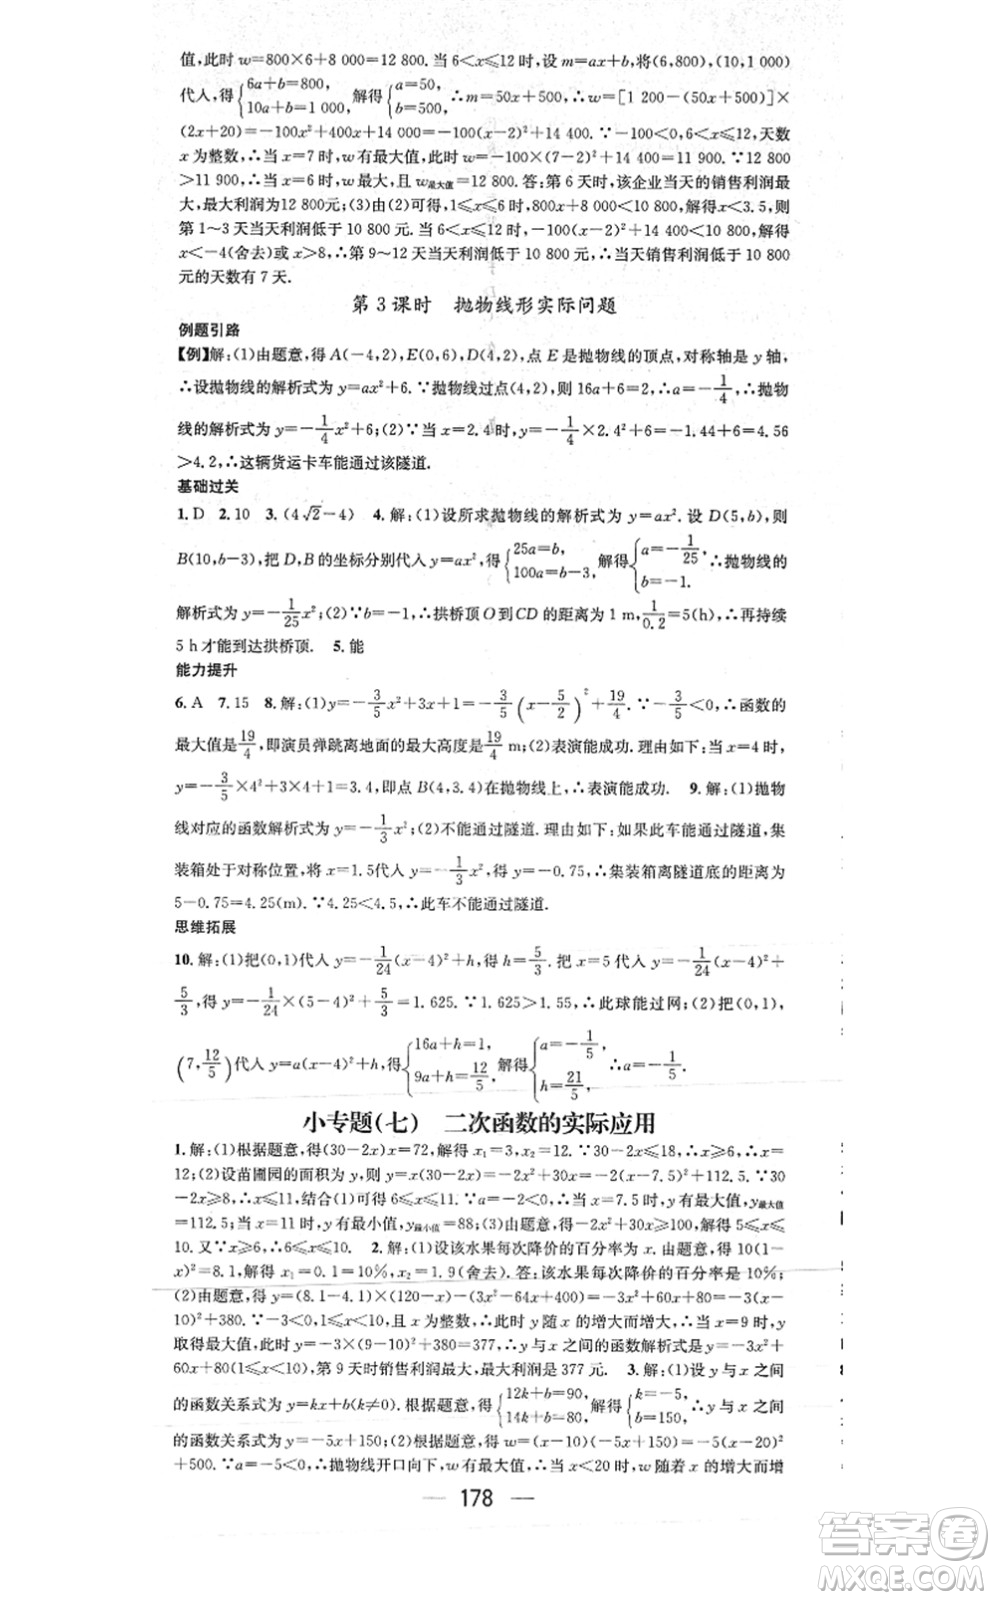 值,此时 w=800×6+8 000=12 800.当 6<x≤12 时,设 m=ax+b,将(6,800),(10,1 000)
代入,得{6a+b=800, 10a+b=1 000, 解得{a=50, b=500, ∴m=50x+500,∴w=[1 200-(50x+500)]×
(2x+20)=-100x²+400x+14 000=-100(x-2)²+14 400.∵-100<0,6<x≤12,天数
x 为整数,∴当 x=7 时,w 有最大值,此时 w=-100×(7-2)²+14 400=11 900.∵12 800
>11 900,∴当 x=6 时,w 最大,且 w最大值=12 800.答:第 6 天时,该企业当天的销售利润最
大,最大利润为12 800元;(3)由(2)可得,1≤x≤6时,800x+8 000<10 800,解得x<3.5,则
第 1~3 天当天利润低于 10 800 元.当 6<x≤12 时,-100(x-2)²+14 400<10 800,解得
x<-4(舍去)或 x>8,∴第 9~12 天当天利润低于 10 800 元,∴当天销售利润低于 10 800
元的天数有 7 天.
第 3 课时 抛物线形实际问题
例题引路
【例】解:(1)由题意,得 A(-4,2),E(0,6),D(4,2),点 E 是抛物线的顶点,对称轴是 y 轴,
∴设抛物线的解析式为 y=ax²+6.∵抛物线过点(4,2),则 16a+6=2,∴a=-1/4,∴抛物
线的解析式为 y=-1/4x²+6;(2)∵当 x=2.4 时,y=-1/4×2.4²+6=-1.44+6=4.56
>4.2,∴这辆货运卡车能通过该隧道.
基础过关
1.D 2.10 3.(4√2-4) 4.解:(1)设所求抛物线的解析式为 y=ax².设 D(5,b),则
B(10,b-3),把 D,B 的坐标分别代入 y=ax²,得{25a=b, 100a=b-3, 解得{a=-1/25, b=-1. ∴抛物线的
解析式为 y=-1/25x²;(2)∵b=-1,∴拱桥顶 O 到 CD 的距离为 1 m,1/0.2=5(h),∴再持续
5 h 才能到达拱桥顶. 5.能
能力提升
6.A 7.15 8.解:(1)y=-3/5x²+3x+1=-3/5(x-5/2)²+19/4.∵-3/5<0,∴函数的
最大值是19/4,即演员弹跳离地面的最大高度是19/4 m;(2)表演能成功.理由如下:当 x=4 时,
y=-3/5×4²+3×4+1=3.4,即点 B(4,3.4)在抛物线上,∴表演能成功. 9.解:(1)抛物
线对应的函数解析式为 y=-1/3x²;(2)不能通过隧道.理由如下:如果此车能通过隧道,集
装箱处于对称位置,将 x=1.5代入 y=-1/3x²,得 y=-0.75,∴集装箱离隧道底的距离为
5-0.75=4.25(m).∵4.25<4.5,∴此车不能通过隧道.
思维拓展
10.解:(1)把(0,1)代入 y=-1/24(x-4)²+h,得 h=5/3.把 x=5代入 y=-1/24(x-4)²+
5/3,得 y=-1/24×(5-4)²+5/3=1.625.∵1.625>1.55,∴此球能过网;(2)把(0,1),
(7,12/5)代入 y=a(x-4)²+h,得{16a+h=1, 9a+h=12/5, 解得{a=-1/5, h=21/5, ∴a=-1/5.
小专题(七) 二次函数的实际应用
1.解:(1)根据题意,得(30-2x)x=72,解得 x₁=3,x₂=12.∵30-2x≤18,∴x≥6,∴x=
12;(2)设苗圃园的面积为 y,则 y=x(30-2x)=-2x²+30x=-2(x-7.5)²+112.5.∵30
-2x≥8,∴x≤11,结合(1)可得 6≤x≤11.∵a=-2<0,∴当 x=7.5 时,y有最大值,y最大值
=112.5;当 x=11 时,y 有最小值,y最小值=88;(3)由题意,得-2x²+30x≥100,解得 5≤x≤
10.又∵x≥6,∴6≤x≤10. 2.解:(1)设该水果每次降价的百分率为 x.由题意,得 10(1-
x)²=8.1,解得 x₁=0.1=10%,x₂=1.9(舍去).答:该水果每次降价的百分率是 10%;
取得最大值,此时 y=-3(9-10)²+380=377,∴y 与 x 之间的函数解析式是 y=-3x²+
60x+80(1≤x<10),第 9 天时销售利润最大,最大利润是 377 元. 3.解:(1)设 y 与 x 之间
的函数关系式为 y=kx+b(k≠0).根据题意,得{12k+b=90, 14k+b=80, 解得{k=-5, b=150, ∴y 与 x 之间
的函数关系式为 y=-5x+150;(2)根据题意,得 w=(x-10)(-5x+150)=-5(x-20)²
+500.∵a=-5<0,∴抛物线开口向下,w 有最大值,∴当 x<20 时,w 随着 x 的增大而增
178
答案卷
MXQE.COM